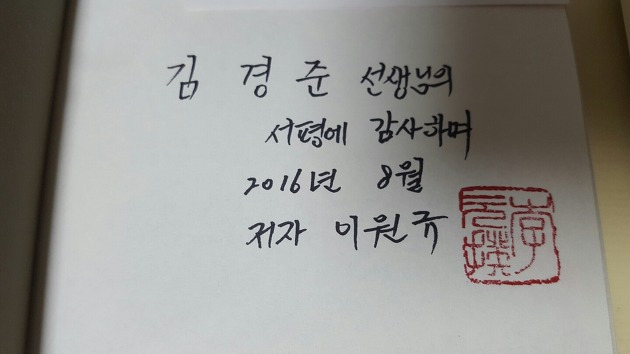 김 경 준 선생님의
서평에 감사하며
2016년 8월
저자 이원규